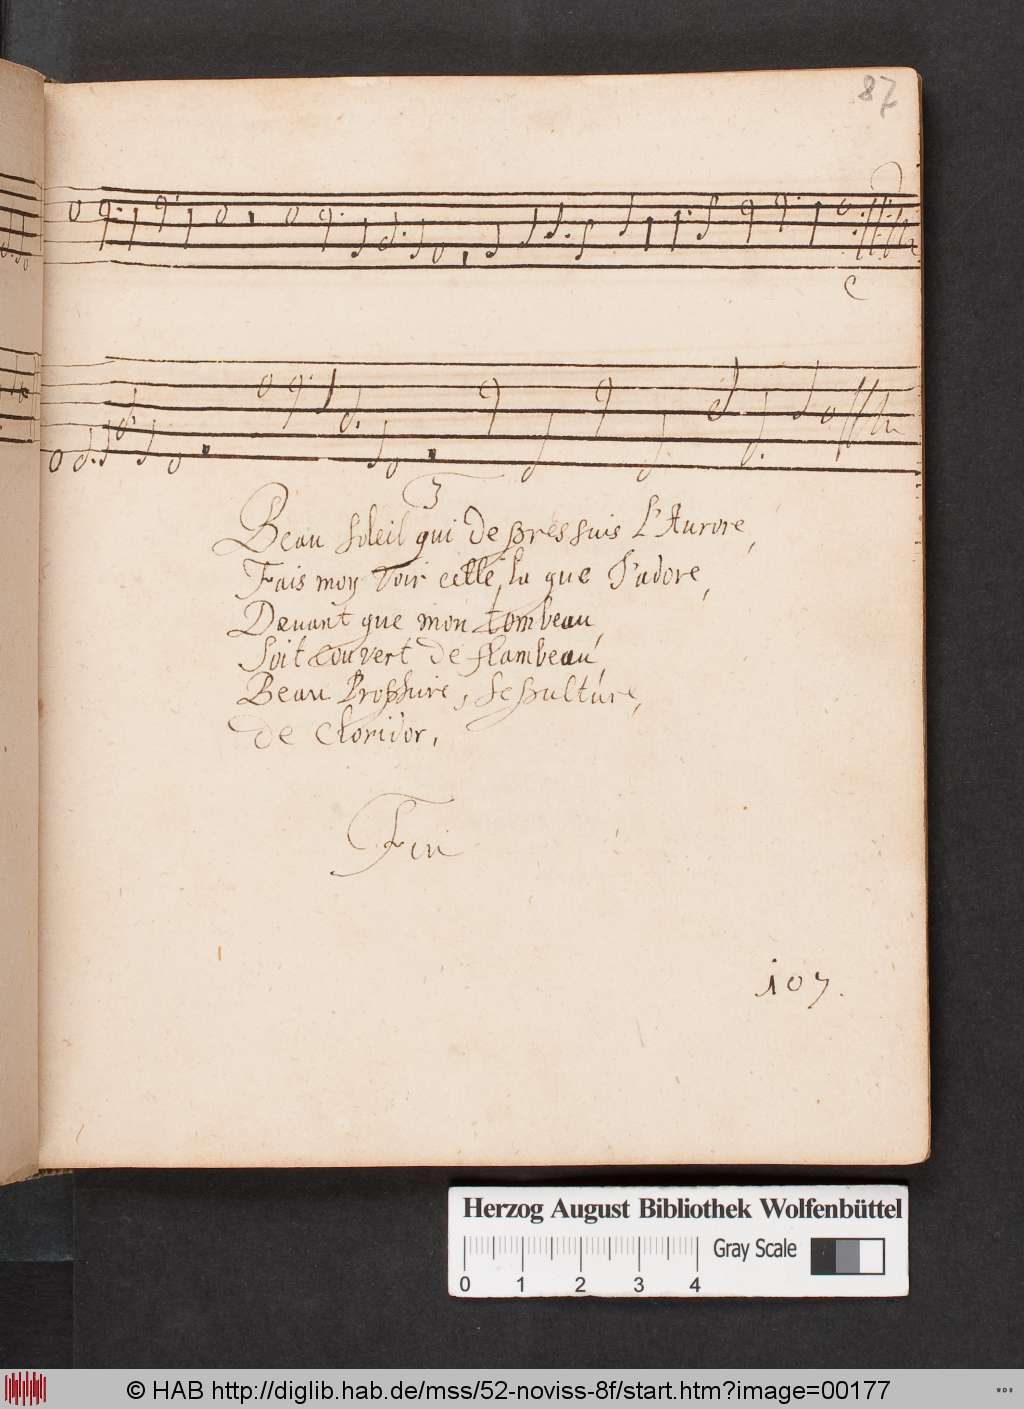 87
3
Beau soleil qui de pres suis L'Aurore,
Fais moy voir celle la que J'adore,
Devant que mon tombeau,
Soit couvert de flambeau,
Beau Prophire, sepulture,
de Cloridor,
Fin
107.
Herzog August Bibliothek Wolfenbüttel
Gray Scale
0 1 2 3 4
© HAB http://diglib.hab.de/mss/52-noviss-8f/start.htm?image=00177